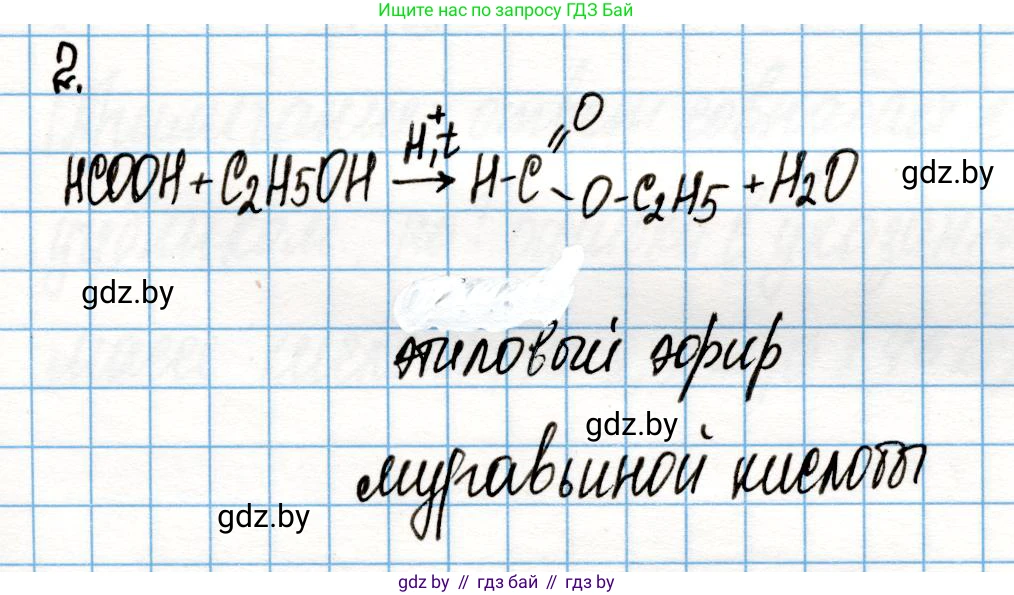 Ищите нас по запросу ГДЗ Бай
2.
HCOOH + C2H5OH H+, t → H-C =O -O-C2H5 + H2O
gdz.by
gdz.by
этиловый эфир
gdz.by
муравьиной кислоты
gdz.by
gdz.by // гдз бай // гдз by